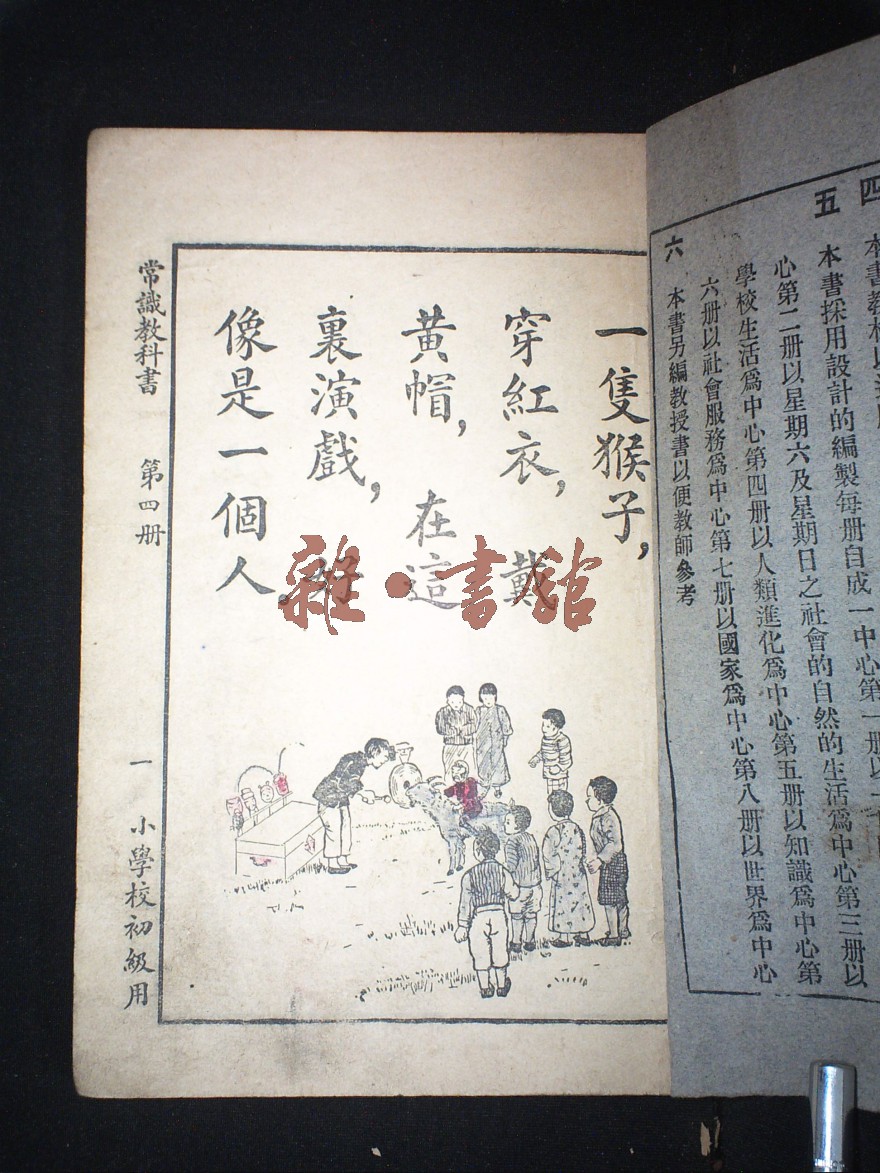 四 本書教材以
五 本書採用設計的編製每册自成一中心第一册以一
心第二册以星期六及星期日之社會的自然的生活爲中心第三册以
學校生活爲中心第四册以人類進化爲中心第五册以知識爲中心第
六册以社會服務爲中心第七册以國家爲中心第八册以世界爲中心
六 本書另編教授書以便教師參考
一隻猴子,
穿紅衣, 戴
黃帽, 在這
裏演戲,
像是一個人.
常識教科書 第四册 一 小學校初級用
雜·書館